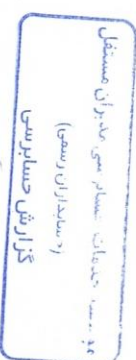 موسسه خدمات حسابرسی مدیران مستقل
(حسابداران رسمی)
گزارش حسابرسی